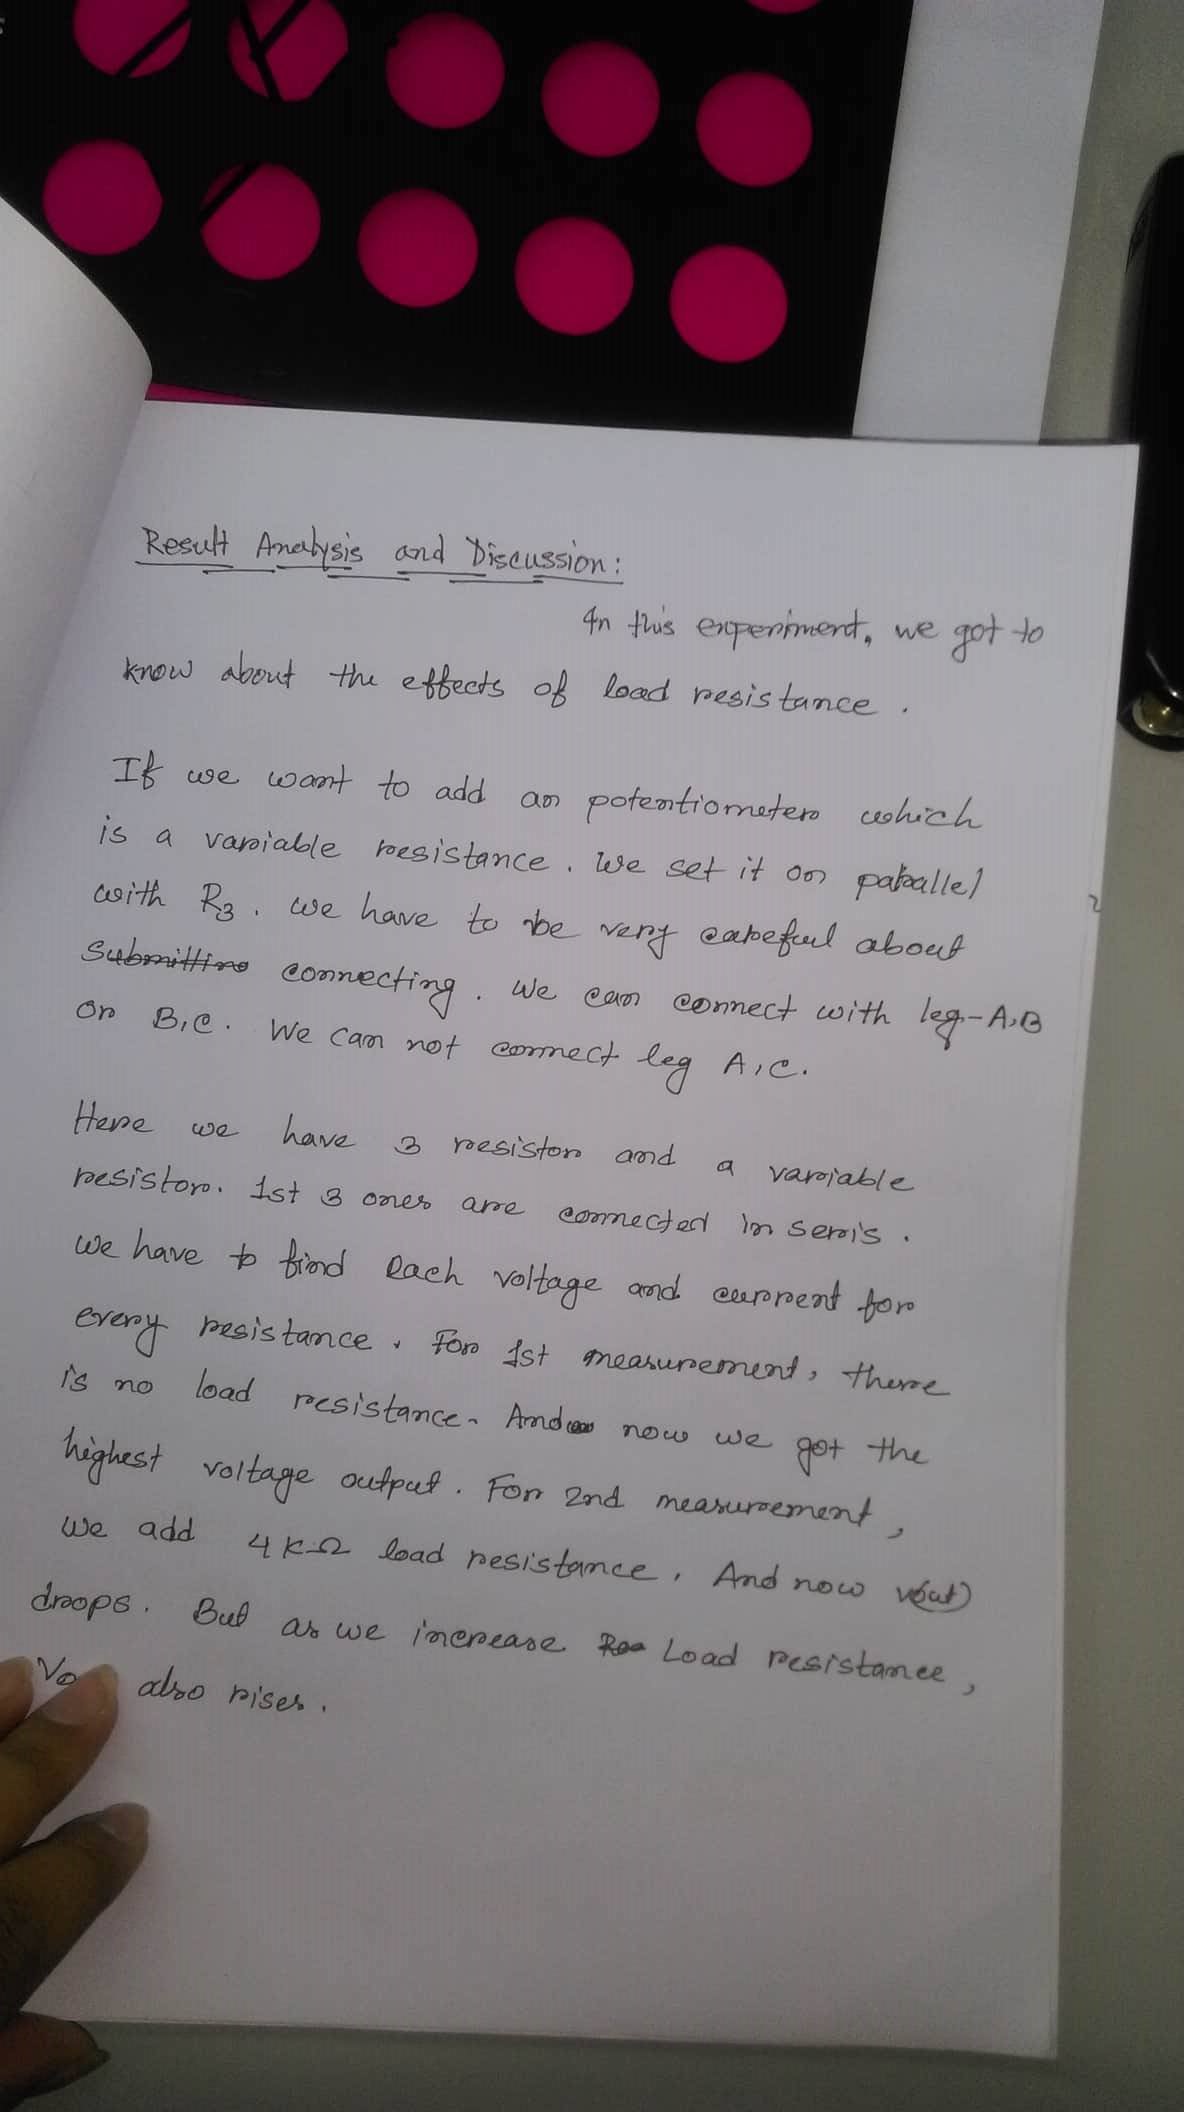 Result Analysis and Discussion:
In this experiment, we got to
know about the effects of load resistance.
If we want to add an potentiometer which
is a variable resistance. We set it on parallel
with R3. We have to be very careful about
Submitting connecting. We can connect with leg-A,B
or B,C. We can not connect leg A,C.
Here we have 3 resistor and a variable
resistor. 1st 3 ones are connected in seris.
we have to find each voltage and current for
every resistance. For 1st measurement, there
is no load resistance. And now we got the
highest voltage output. For 2nd measurement,
we add 4KΩ load resistance. And now vout
drops. But as we increase Load resistance,
also rises.